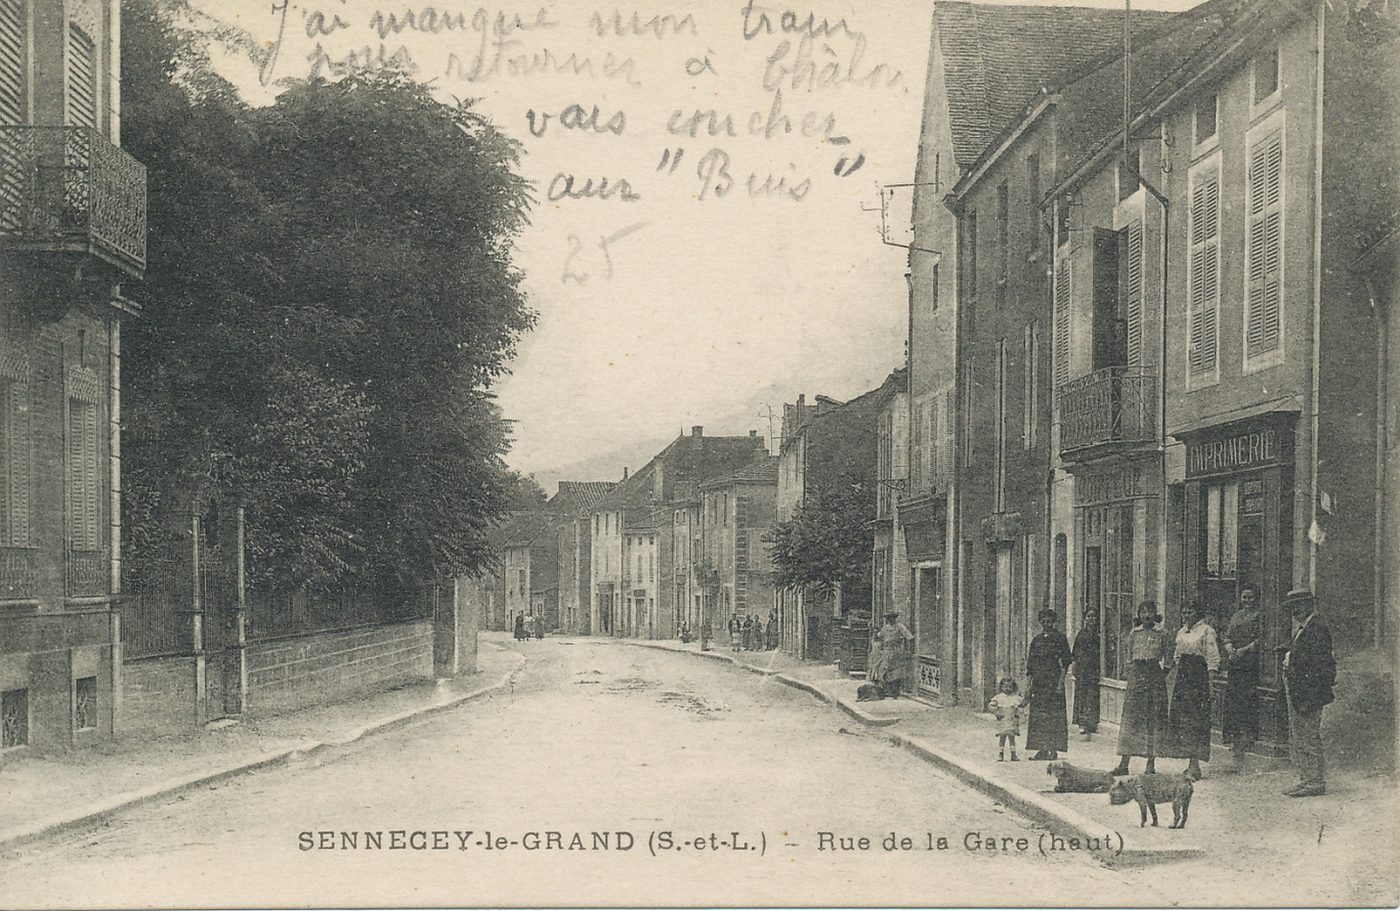 J'ai manqué mon train
pour retourner à Châlon
vais coucher
aux "Buis"
25
IMPRIMERIE
SENNECEY-le-GRAND (S.-et-L.) - Rue de la Gare (haut)